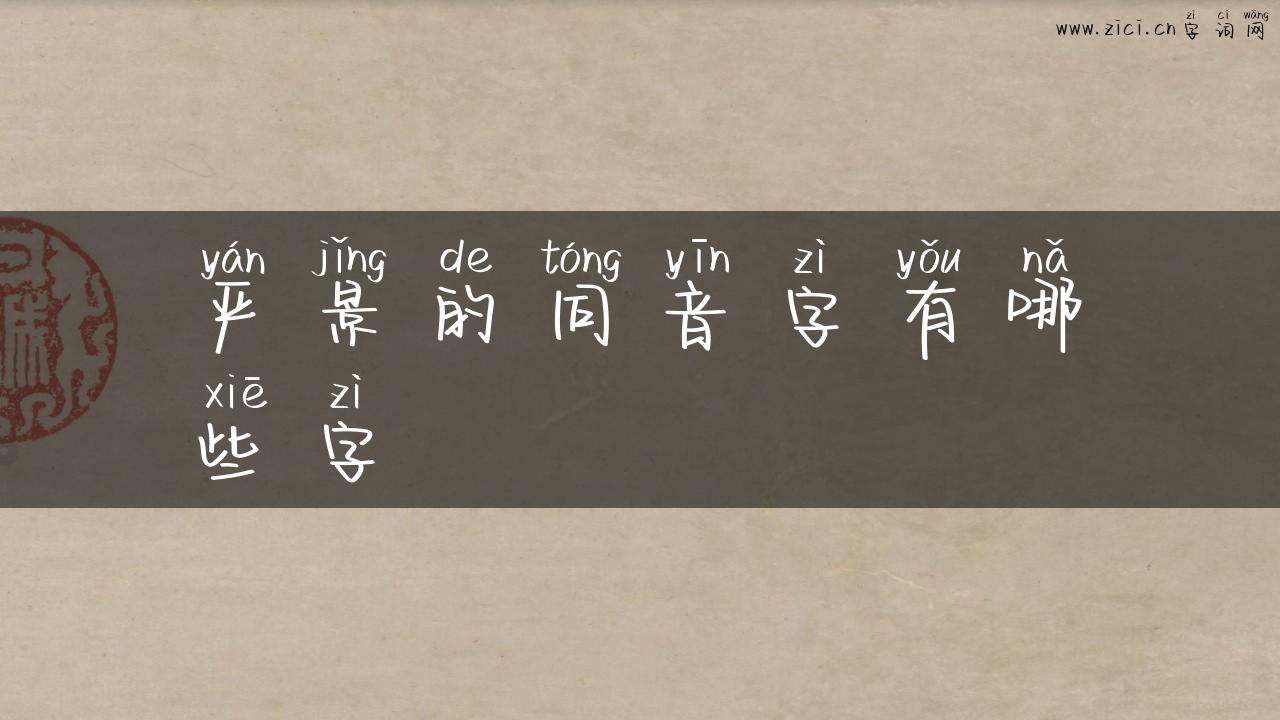 zì cí wǎng
www.zici.cn 字词网
yán jǐng de tóng yīn zì yǒu nǎ
严景的同音字有哪
xiē zì
些字